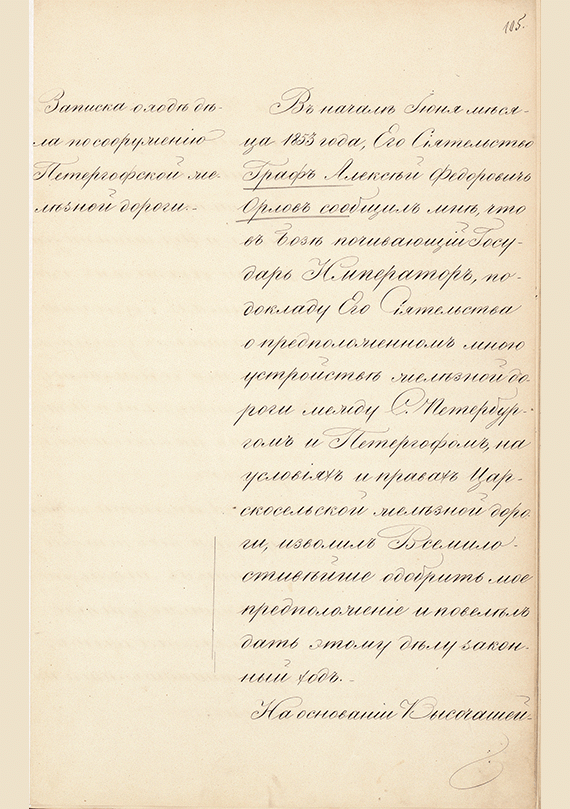 105.
Записка о ходѣ дѣ-
ла по сооруженію
Петергофской же-
лѣзной дороги.-
Въ началѣ Іюня мѣся-
ца 1853 года, Его Сіятельство
Графъ Алексѣй Федоровичъ
Орловъ сообщилъ мнѣ, что
въ Бозѣ почивающій Госу-
дарь Императоръ, по-
докладу Его Сіятельства
о предположенномъ мною
устройствѣ желѣзной до-
роги между С. Петербур-
гомъ и Петергофомъ, на
условіяхъ и правахъ Цар-
скосельской желѣзной доро-
ги, изволилъ Всемило-
стивѣйше одобрить мое
предположеніе и повелѣлъ
дать этому дѣлу закон-
ный ходъ.-
На основаніи Высочайшей